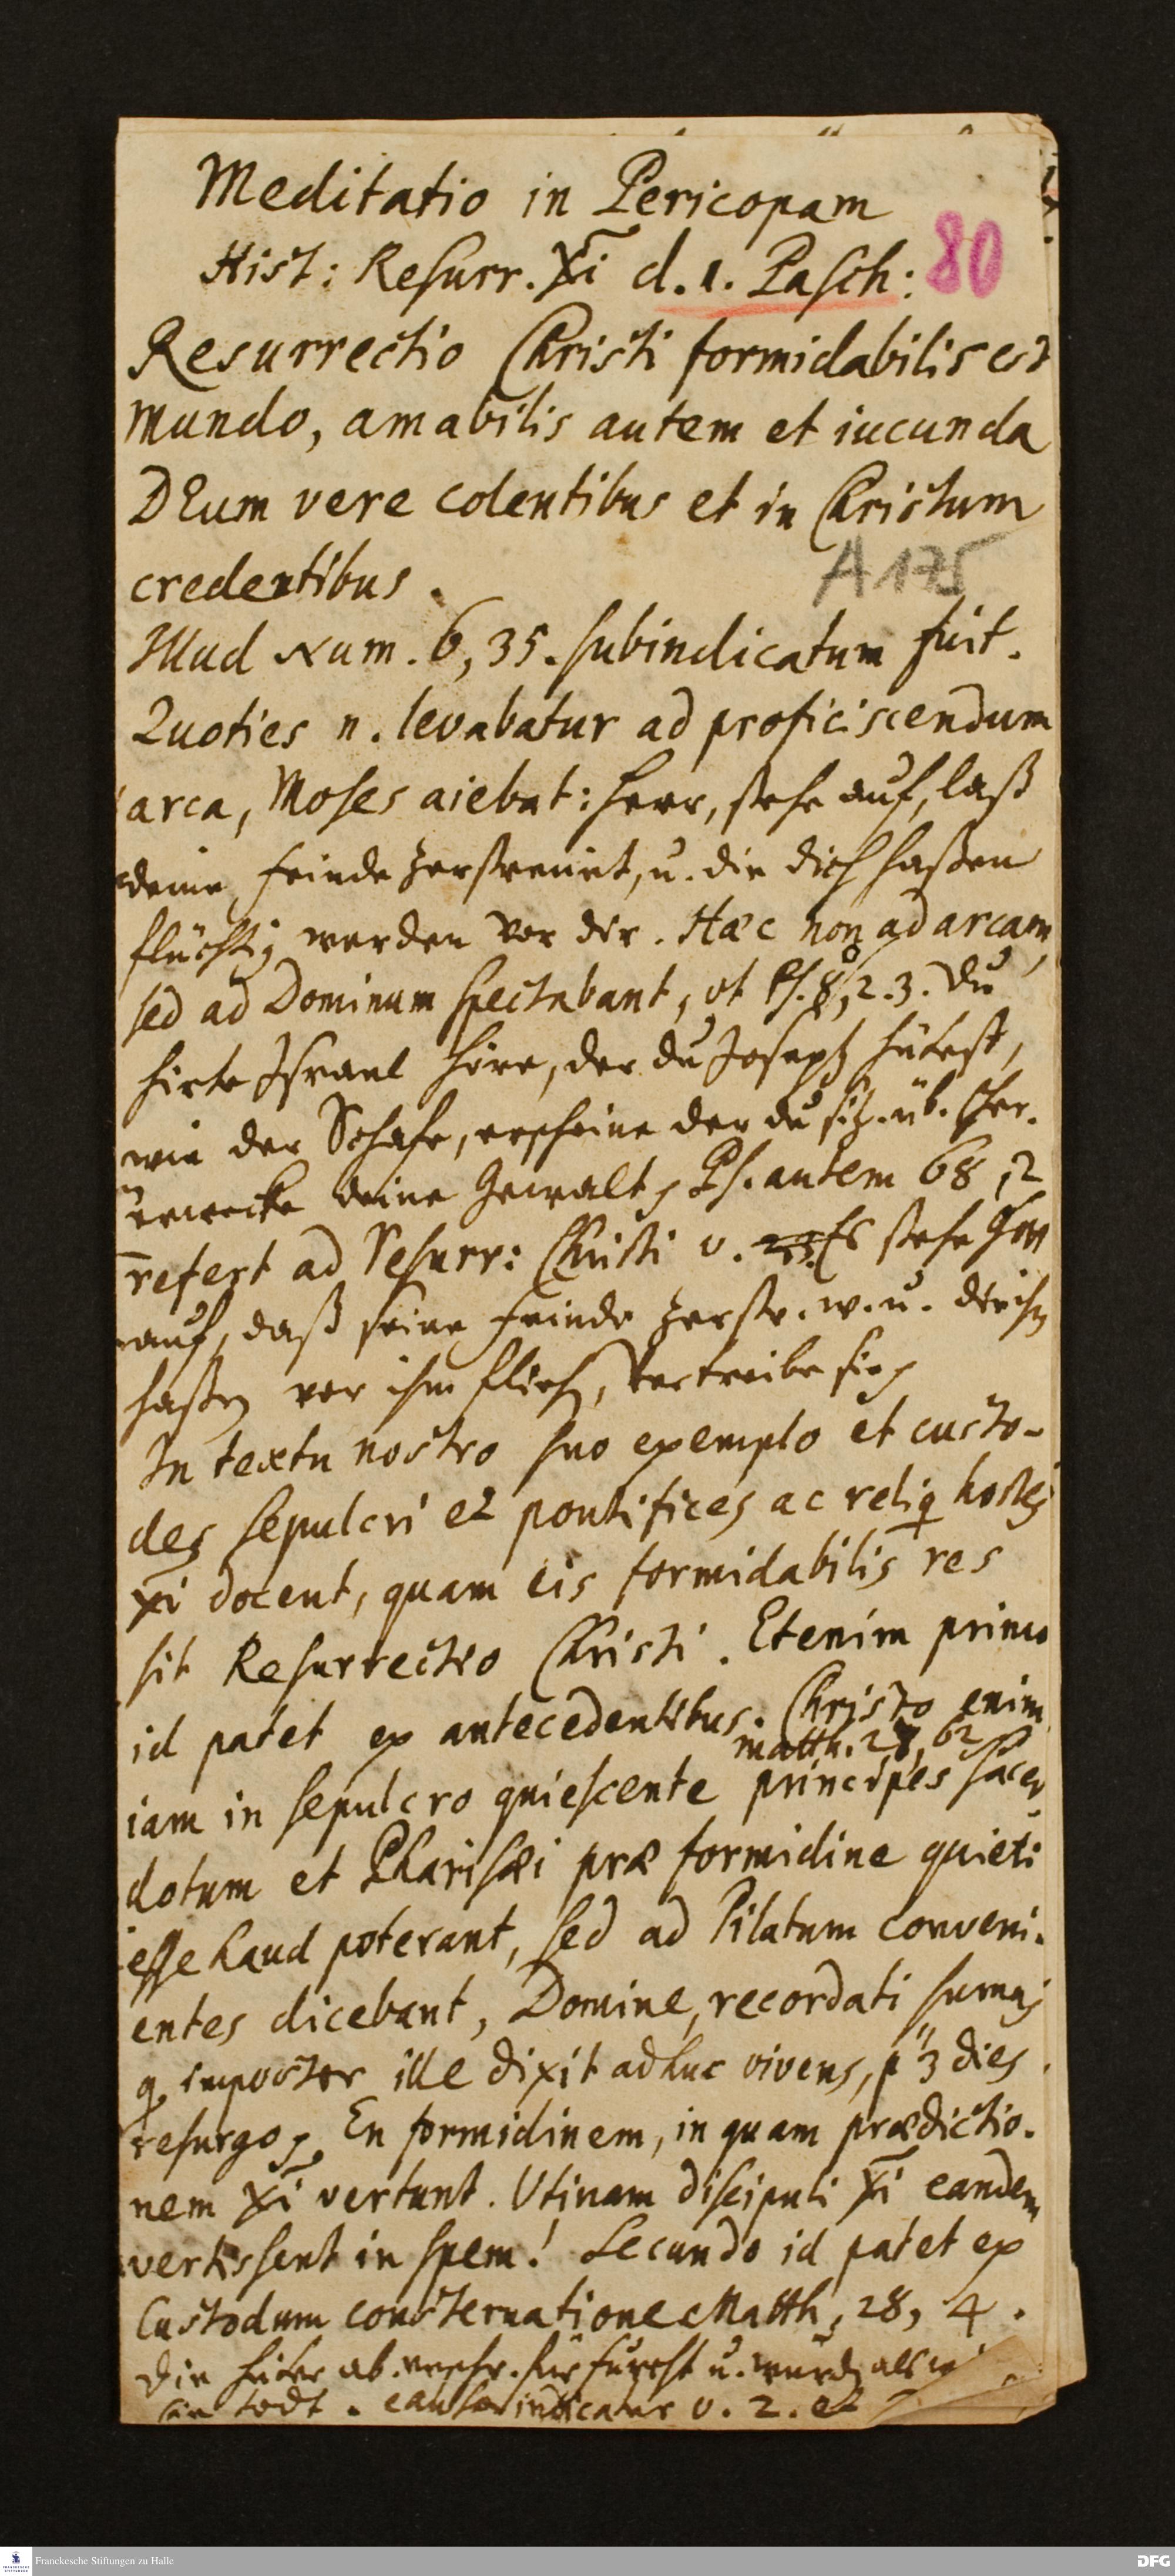 Meditatio in Pericopam
Hist: Resurr. Xi d. 1. Pasch:
80
Resurrectio Christi formidabilis est
mundo, amabilis autem et iucunda
DEum vere colentibus et in Christum
credentibus.
A 175
Illud Num. 6, 35. subindicatum fuit.
Quoties n. levabatur ad proficiscendum
arca, Moses aiebat: Herr, stehe auf, laß
deine Feinde zerstreuet, u. die dich haßen
flüchtig werden vor dir. Hæc non ad arcam,
sed ad Dominum spectabant, ut Ps. 80, 2. 3. Du
Hirte Israel höre, der du Joseph hütest,
wie der Schafe, erscheine der du sitz. üb. Cher.
erwecke deine Gewalt, Ps. autem 68, 2
refert ad Resurr: Christi v. Es stehe Gott
auf, daß seine Feinde zerstr. w. u. die ihn
haßen vor ihm flieh, Vertreibe sie
In textu nostro suo exemplo et custo-
des sepulcri et pontifices ac reliq hostes
Xi docent, quam eis formidabilis res
sit Resurrectio Christi. Etenim primo
id patet ex antecedentibus. Christo enim
Matth. 27, 62
iam in sepulcro quiescente principes sacer
dotum et Pharisæi præ formidine quieti
esse haud poterant, sed ad Pilatum conveni-
entes dicebant, Domine, recordati sumus
q impostor ille dixit adhuc vivens, p 3 dies
resurgo. En formidinem, in quam prædictio-
nem Xi vertunt. Utinam discipuli Xi eandem
vertissent in spem! Secundo id patet ex
Custodum consternatione Matth, 28, 4.
Die Hüter ab. erschr. für Furcht u. wurd als
sie todt. v. 2. et
Franckesche Stiftungen zu Halle
DFG